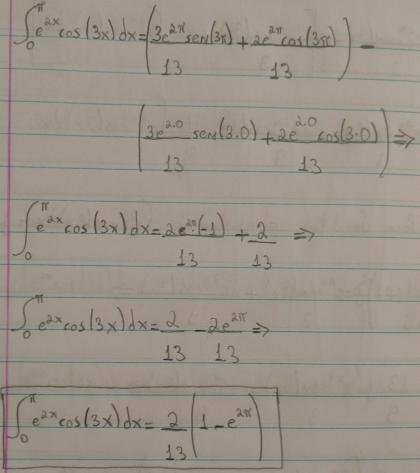 ∫₀^π e^{2x} cos(3x) dx = (3e^{2π} sen(3π)/13 + 2e^{2π} cos(3π)/13) −
(3e^{2.0} sen(3.0)/13 + 2e^{2.0} cos(3.0)/13) ⇒
∫₀^π e^{2x} cos(3x) dx = 2e^{2π}·(-1)/13 + 2/13 ⇒
∫₀^π e^{2x} cos(3x) dx = 2/13 − 2e^{2π}/13 ⇒
∫₀^π e^{2x} cos(3x) dx = 2/13 (1 − e^{2π})